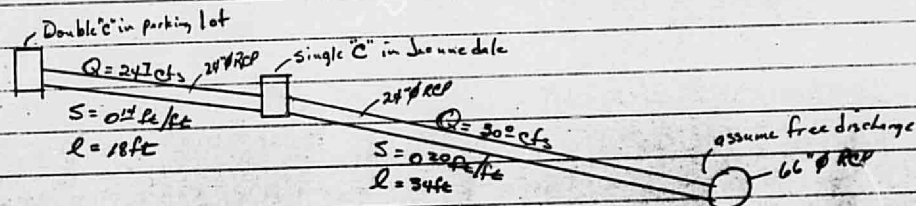 Double "C" in parking lot
Q = 24.7 cfs
24"Ø RCP
single "C" in
24"Ø RCP
S = 0.14 ft/ft
l = 18ft
Q = 30.0 cfs
S = 0.20 ft/ft
l = 34ft
assume free discharge
66"Ø RCP